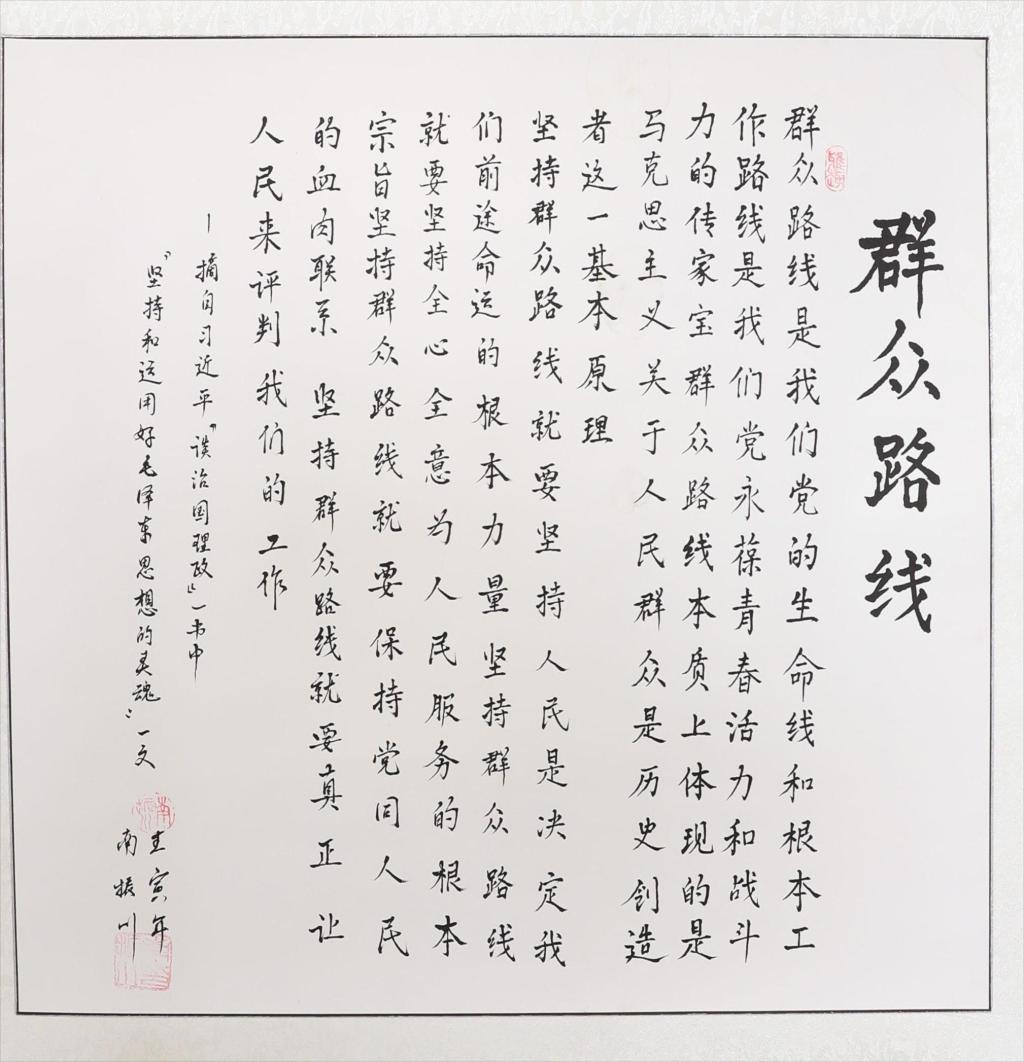 群众路线
群众路线是我们党的生命线和根本工
作路线是我们党永葆青春活力和战斗
力的传家宝群众路线本质上体现的是
马克思主义关于人民群众是历史创造
者这一基本原理
坚持群众路线就要坚持人民是决定我
们前途命运的根本力量坚持群众路线
就要坚持全心全意为人民服务的根本
宗旨坚持群众路线就要保持党同人民
的血肉联系 坚持群众路线就要真正让
人民来评判我们的工作
—摘自习近平“谈治国理政”一书中
“坚持和运用好毛泽东思想的灵魂”一文
壬寅年
南振川